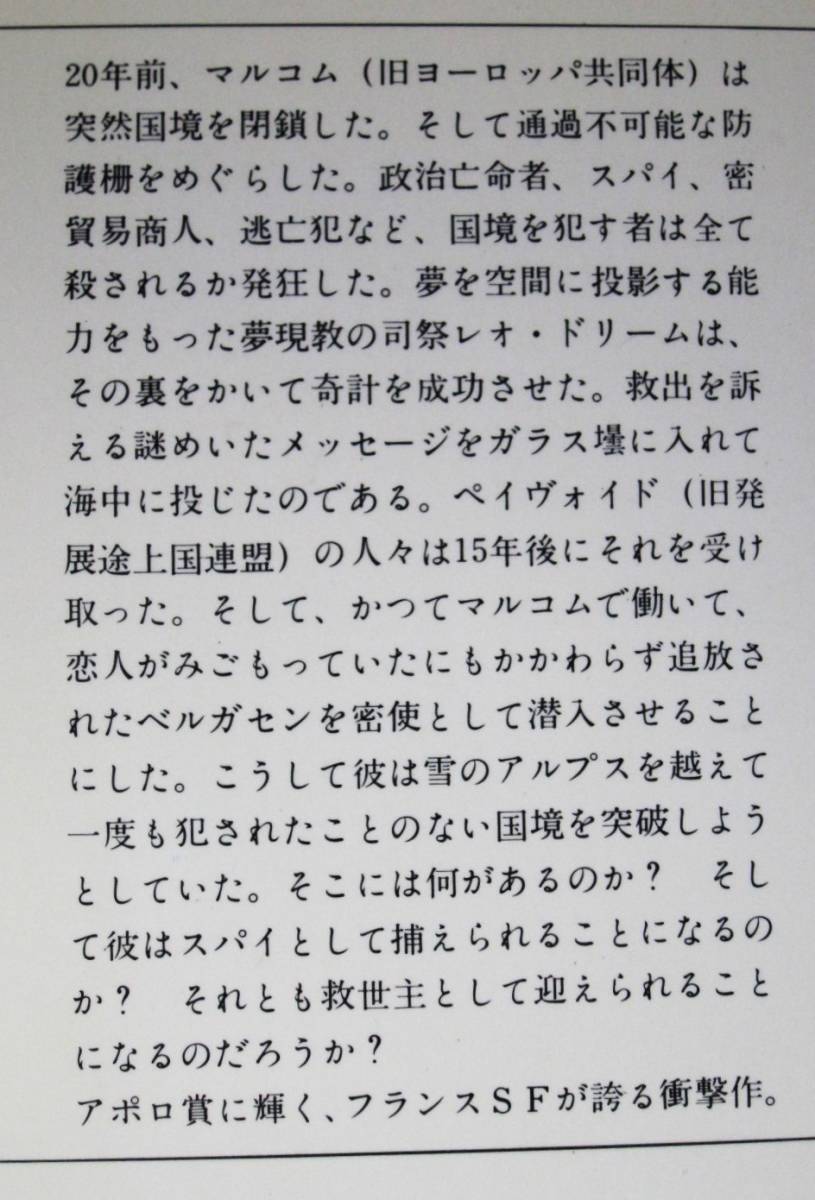 20年前、マルコム（旧ヨーロッパ共同体）は
突然国境を閉鎖した。そして通過不可能な防
護柵をめぐらした。政治亡命者、スパイ、密
貿易商人、逃亡犯など、国境を犯す者は全て
殺されるか発狂した。夢を空間に投影する能
力をもった夢現教の司祭レオ・ドリームは、
その裏をかいて奇計を成功させた。救出を訴
える謎めいたメッセージをガラス壜に入れて
海中に投じたのである。ペイヴォイド（旧発
展途上国連盟）の人々は15年後にそれを受け
取った。そして、かつてマルコムで働いて、
恋人がみごもっていたにもかかわらず追放さ
れたベルガセンを密使として潜入させること
にした。こうして彼は雪のアルプスを越えて
一度も犯されたことのない国境を突破しよう
としていた。そこには何があるのか？　そし
て彼はスパイとして捕えられることになるの
か？　それとも救世主として迎えられること
になるのだろうか？
アポロ賞に輝く、フランスＳＦが誇る衝撃作。